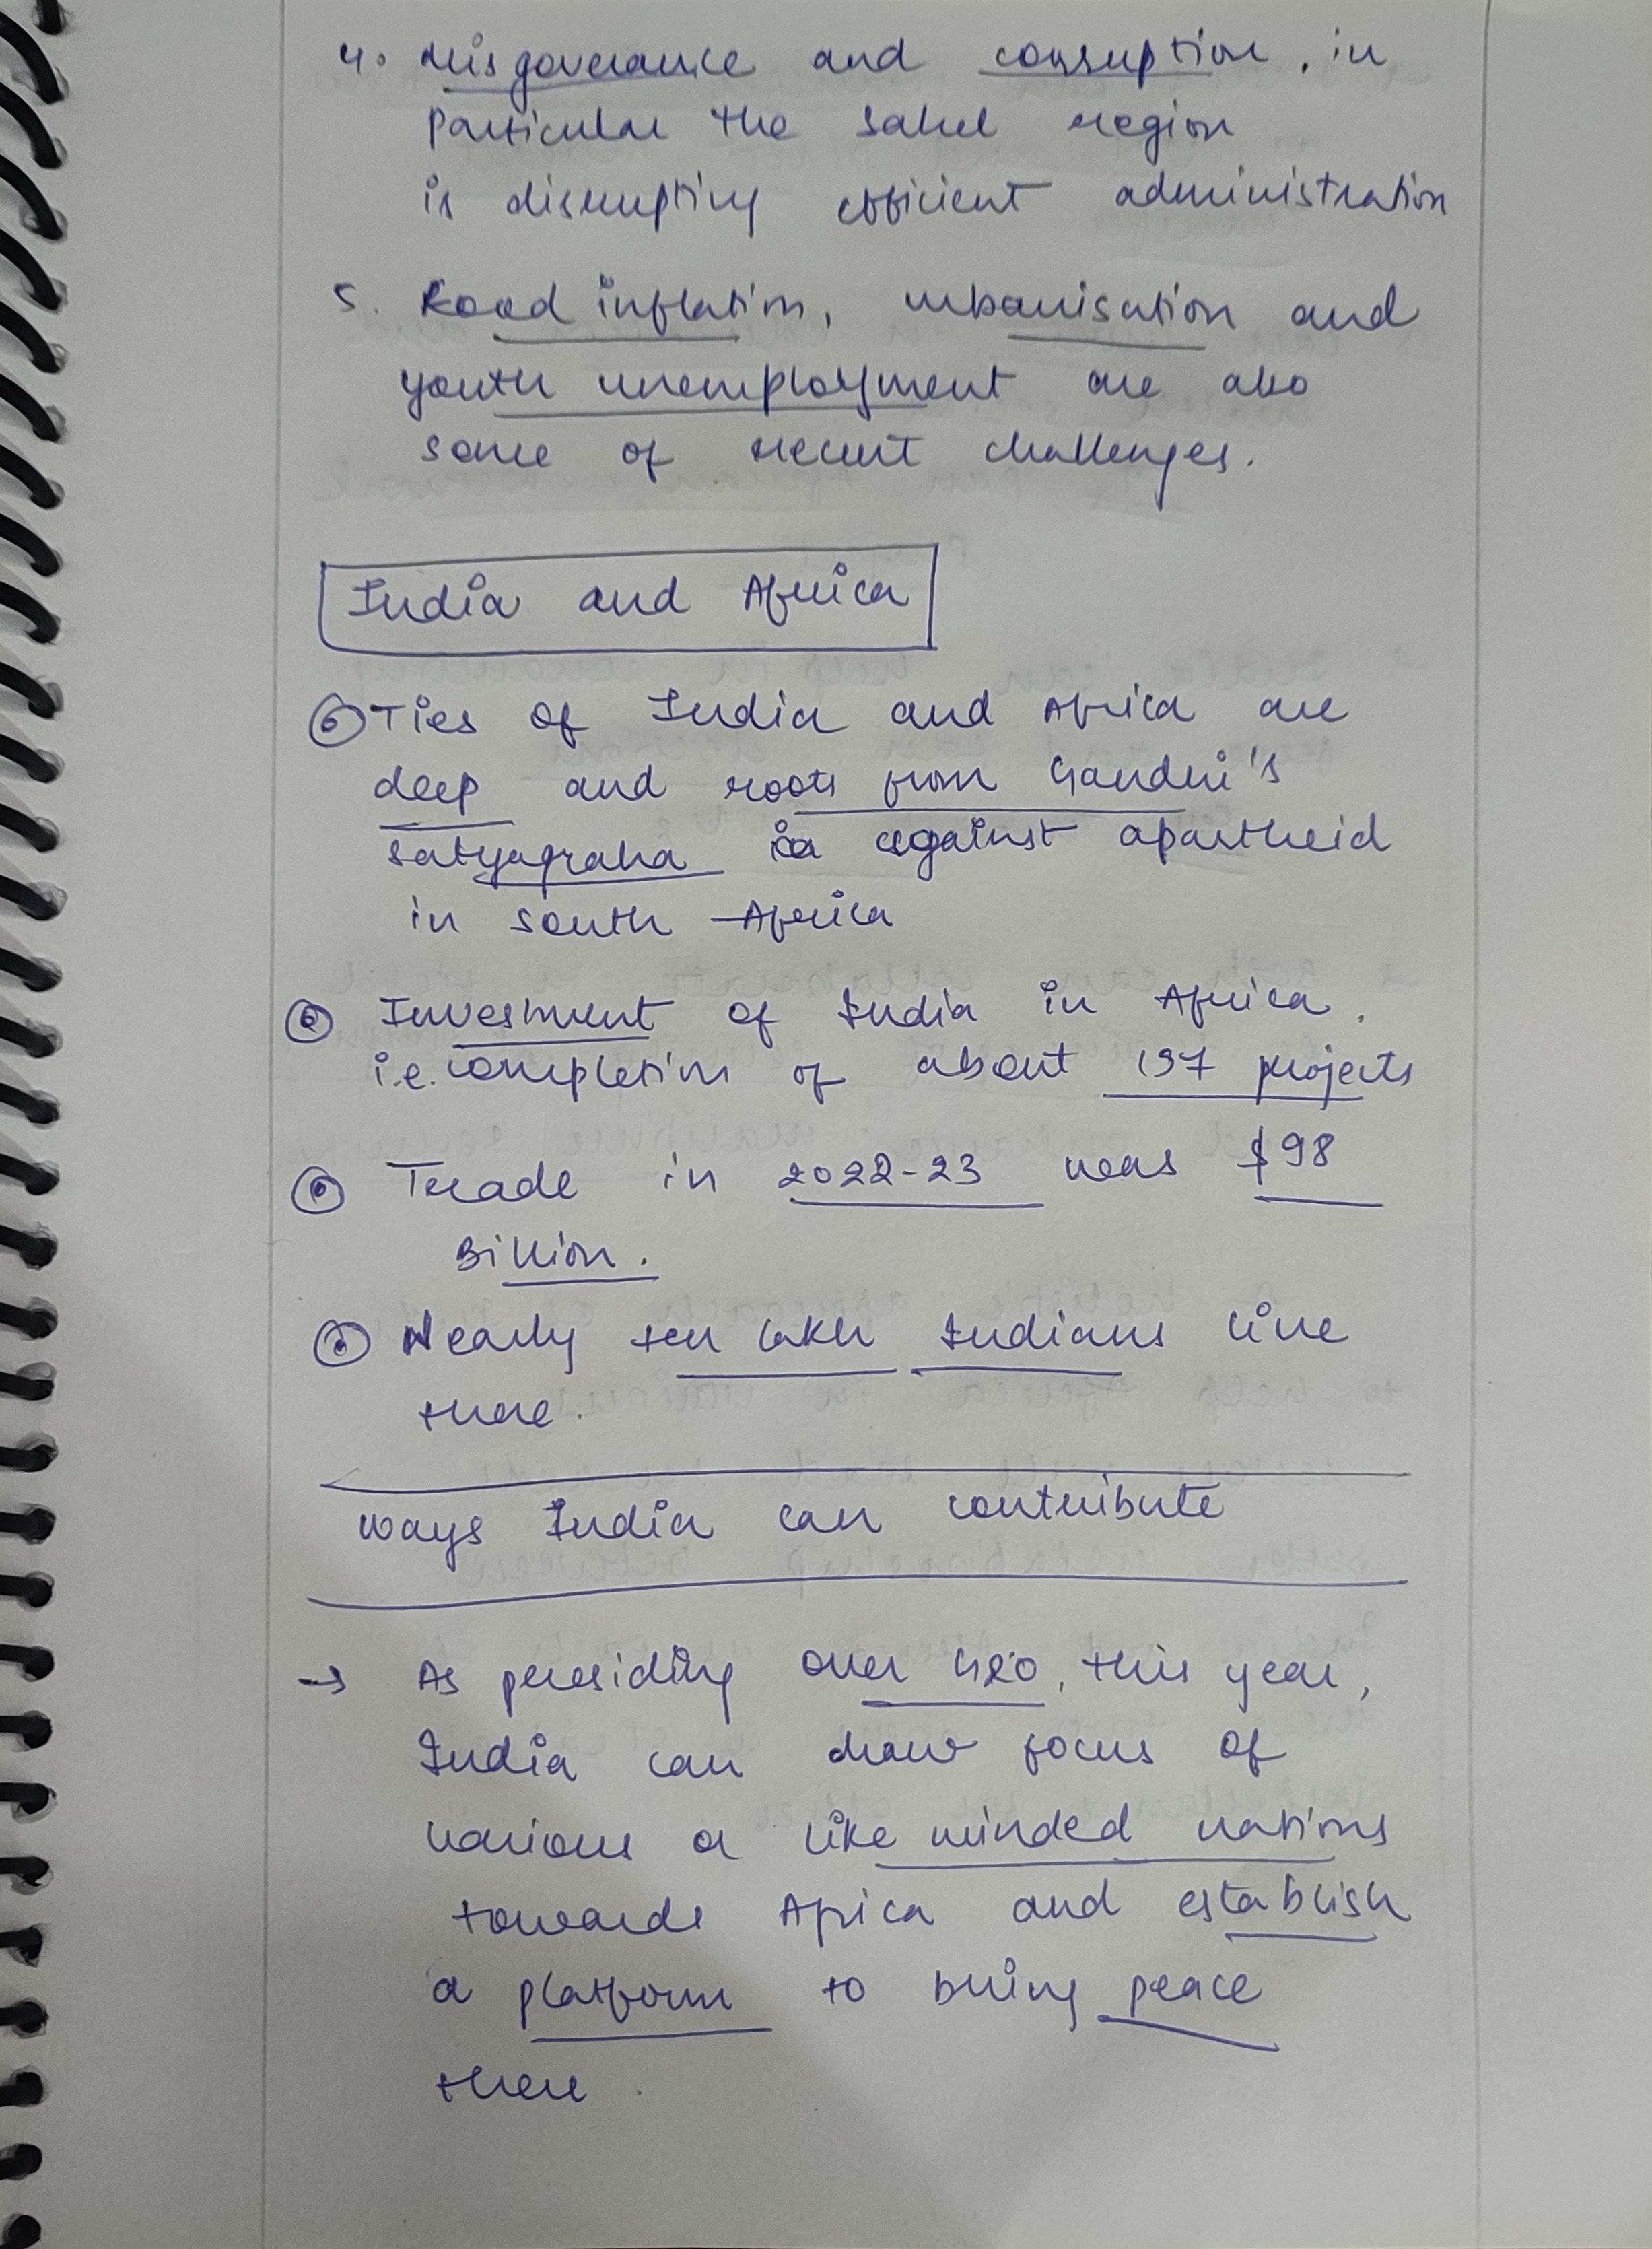 4. Misgoverance and corruption, in
particular the Sahel region
is disrupting efficient administration
5. Food inflation, urbanisation and
youth unemployment are also
some of recent challenges.
India and Africa
Ties of India and Africa are
deep and roots from Gandhi's
satyagraha against apartheid
in South Africa
Investment of India in Africa.
i.e. completion of about 197 projects
Trade in 2022-23 was $98
Billion.
Nearly ten lakh Indians live
there.
Ways India can contribute
→ As presiding over G20, this year,
India can draw focus of
various a like minded nations
towards Africa and establish
a platform to bring peace
there.